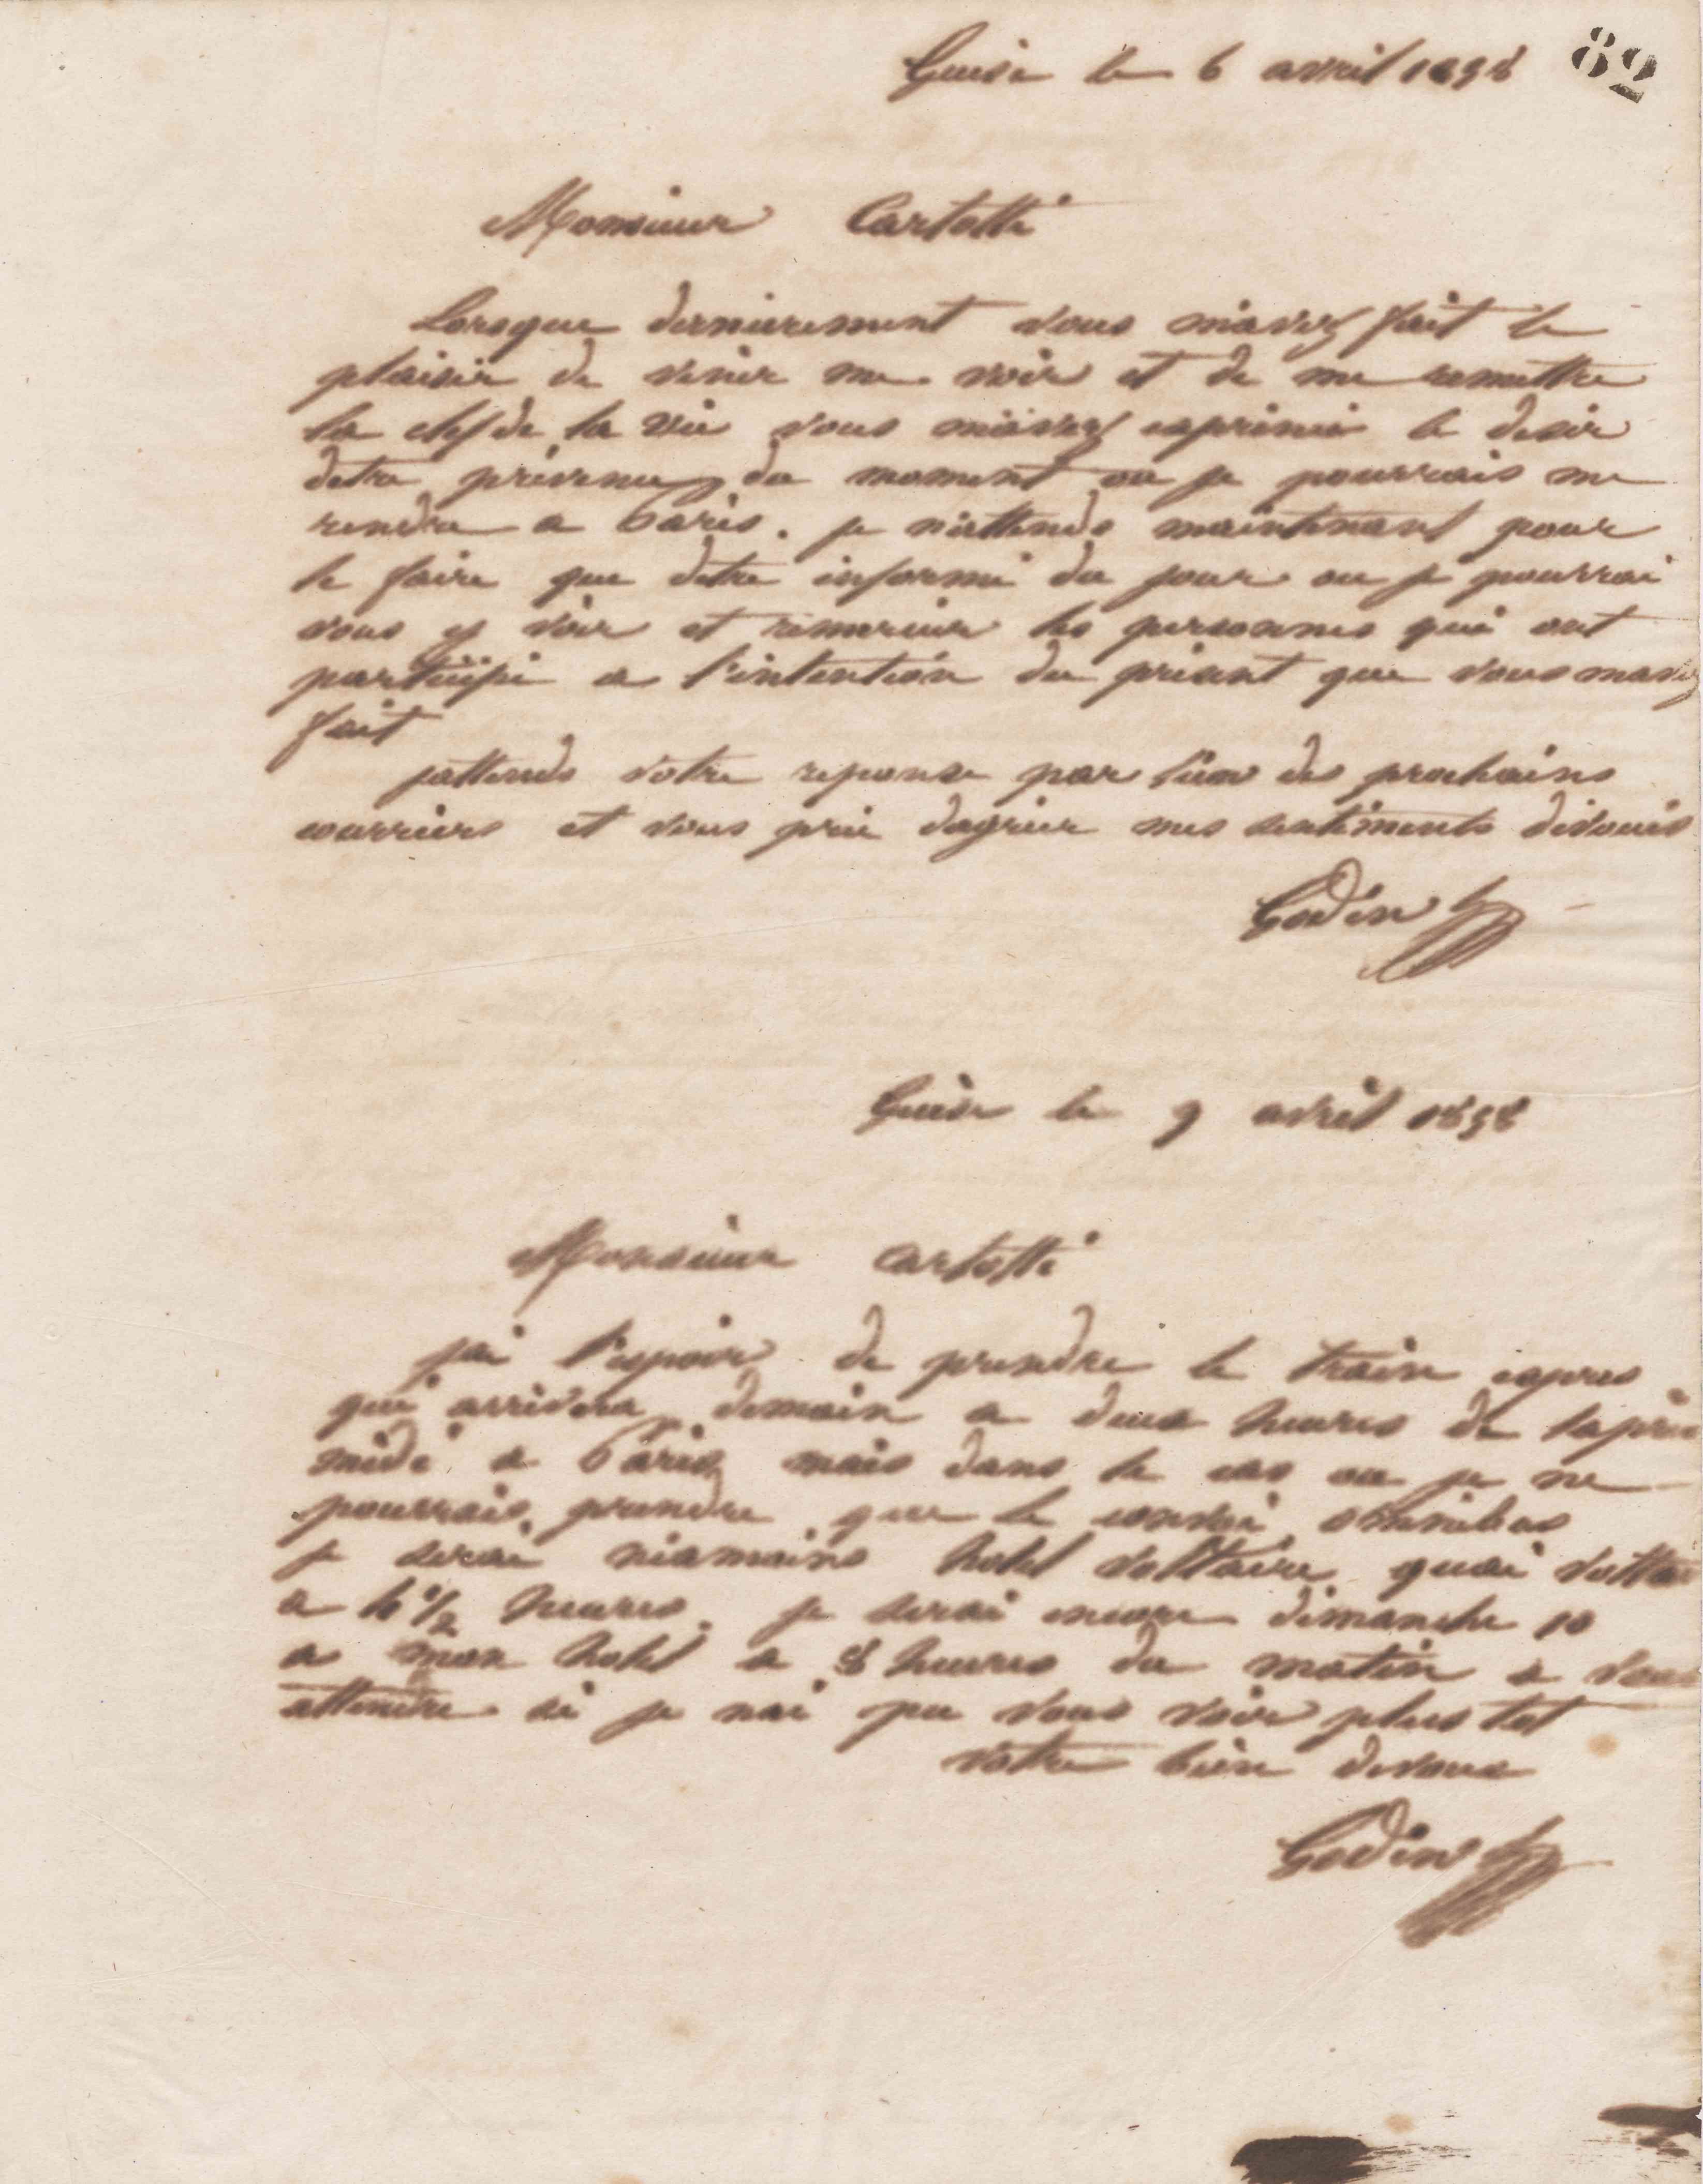 Guise le 6 avril 1858 82
Monsieur Cartotti
Lorsque dernierement vous m'avez fait le
plaisir de venir me voir et de me remettre
la clef de la vie vous m'avez exprimé le desir
detre prévenu du moment ou je pourrais me
rendre a Paris. je n'attends maintenant pour
le faire que detre informé du jour ou je pourrai
vous y voir et remercier les personnes qui ont
participé a l'intention du présent que vous mavez
fait
jattends votre reponse par l'un des prochains
courriers et vous prie dagréer mes sentiments dévoués
Godin
Guise le 9 avril 1858
Monsieur Cartotti
jai l'espoir de prendre le train expres
qui arrivera demain a deux heures de lapres
midi a Paris mais dans le cas ou je ne
pourrais prendre que le convoi omnibus
je serai néamoins hotel Voltaire quai Voltaire
a 4 1/2 heures. je serai encore dimanche 10
a mon hotel a 8 heures du matin a vous
attendre si je nai pu vous voir plus tot
votre bien devoué
Godin